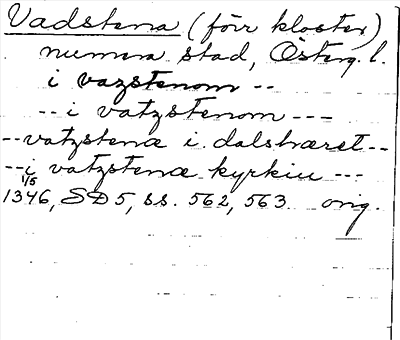 Vadstena (förr kloster)
numera stad, Österg. l.
i vazstenom --
-- i vatzstenom ---
-- vatzstenæ i dalshæret --
-- i vatzstenæ kyrkiu ---
1/5
1346, SD 5, ss. 562, 563 orig.